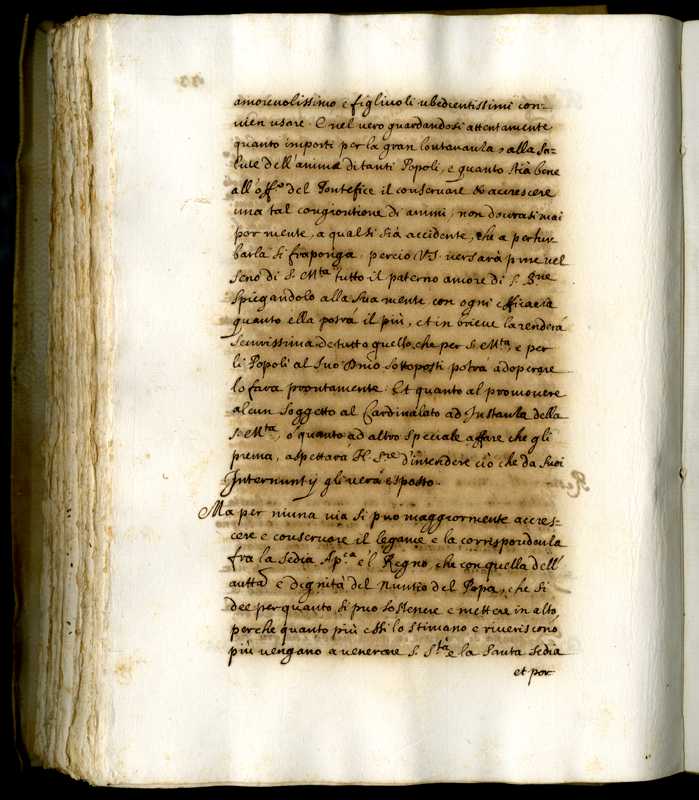 amorevolissimo e figlivoli ubedientissimi con-
vien usare. E nel vero guardandosi attentamente
quanto importi per la gran lontananza, alla sa=
lute dell'anime di tanti Popoli, e quanto stià bene
all'off.o del Pontefice il conservare & accrescere
una tal congiontione di animi, non dovrasi mai
por mente, a qualsi sià accidente, che a pertur-
barla si fraponga, percio VS. versarà prime nel
seno di S. M.ta tutto il paterno amore di S. B.ne
spiegandolo alla sua mente con ogni efficacia
quanto ella potrà il più, et in brieve la renderà
securissima de tutto quello, che per S. M.ta, e per
li Popoli al suo Dnio sottoposti potrà adoperare
lo farà prontamente. Et quanto al promovere
alcun soggetto al Cardinalato ad Instanza della
S. M.ta, ò quanto ad altro speciale affare che gli
prema, aspettarà N. S.re d'intendere ciò che da suoi
Internuntij gli verà esposto.
Ma per niuna via si può maggiormente accres=
cere e conservare il legame e la corrispondenza
fra la sedia Ap.ca e'l Regno, che con quella dell'
autta e dignità del Nuntio del Papa, che si
dee per quanto si puo sostenere e mettere in alto,
perche quanto più essi lo stimano e riveriscono,
più vengano a venerare S. S.tà e la Santa sedia
et por-